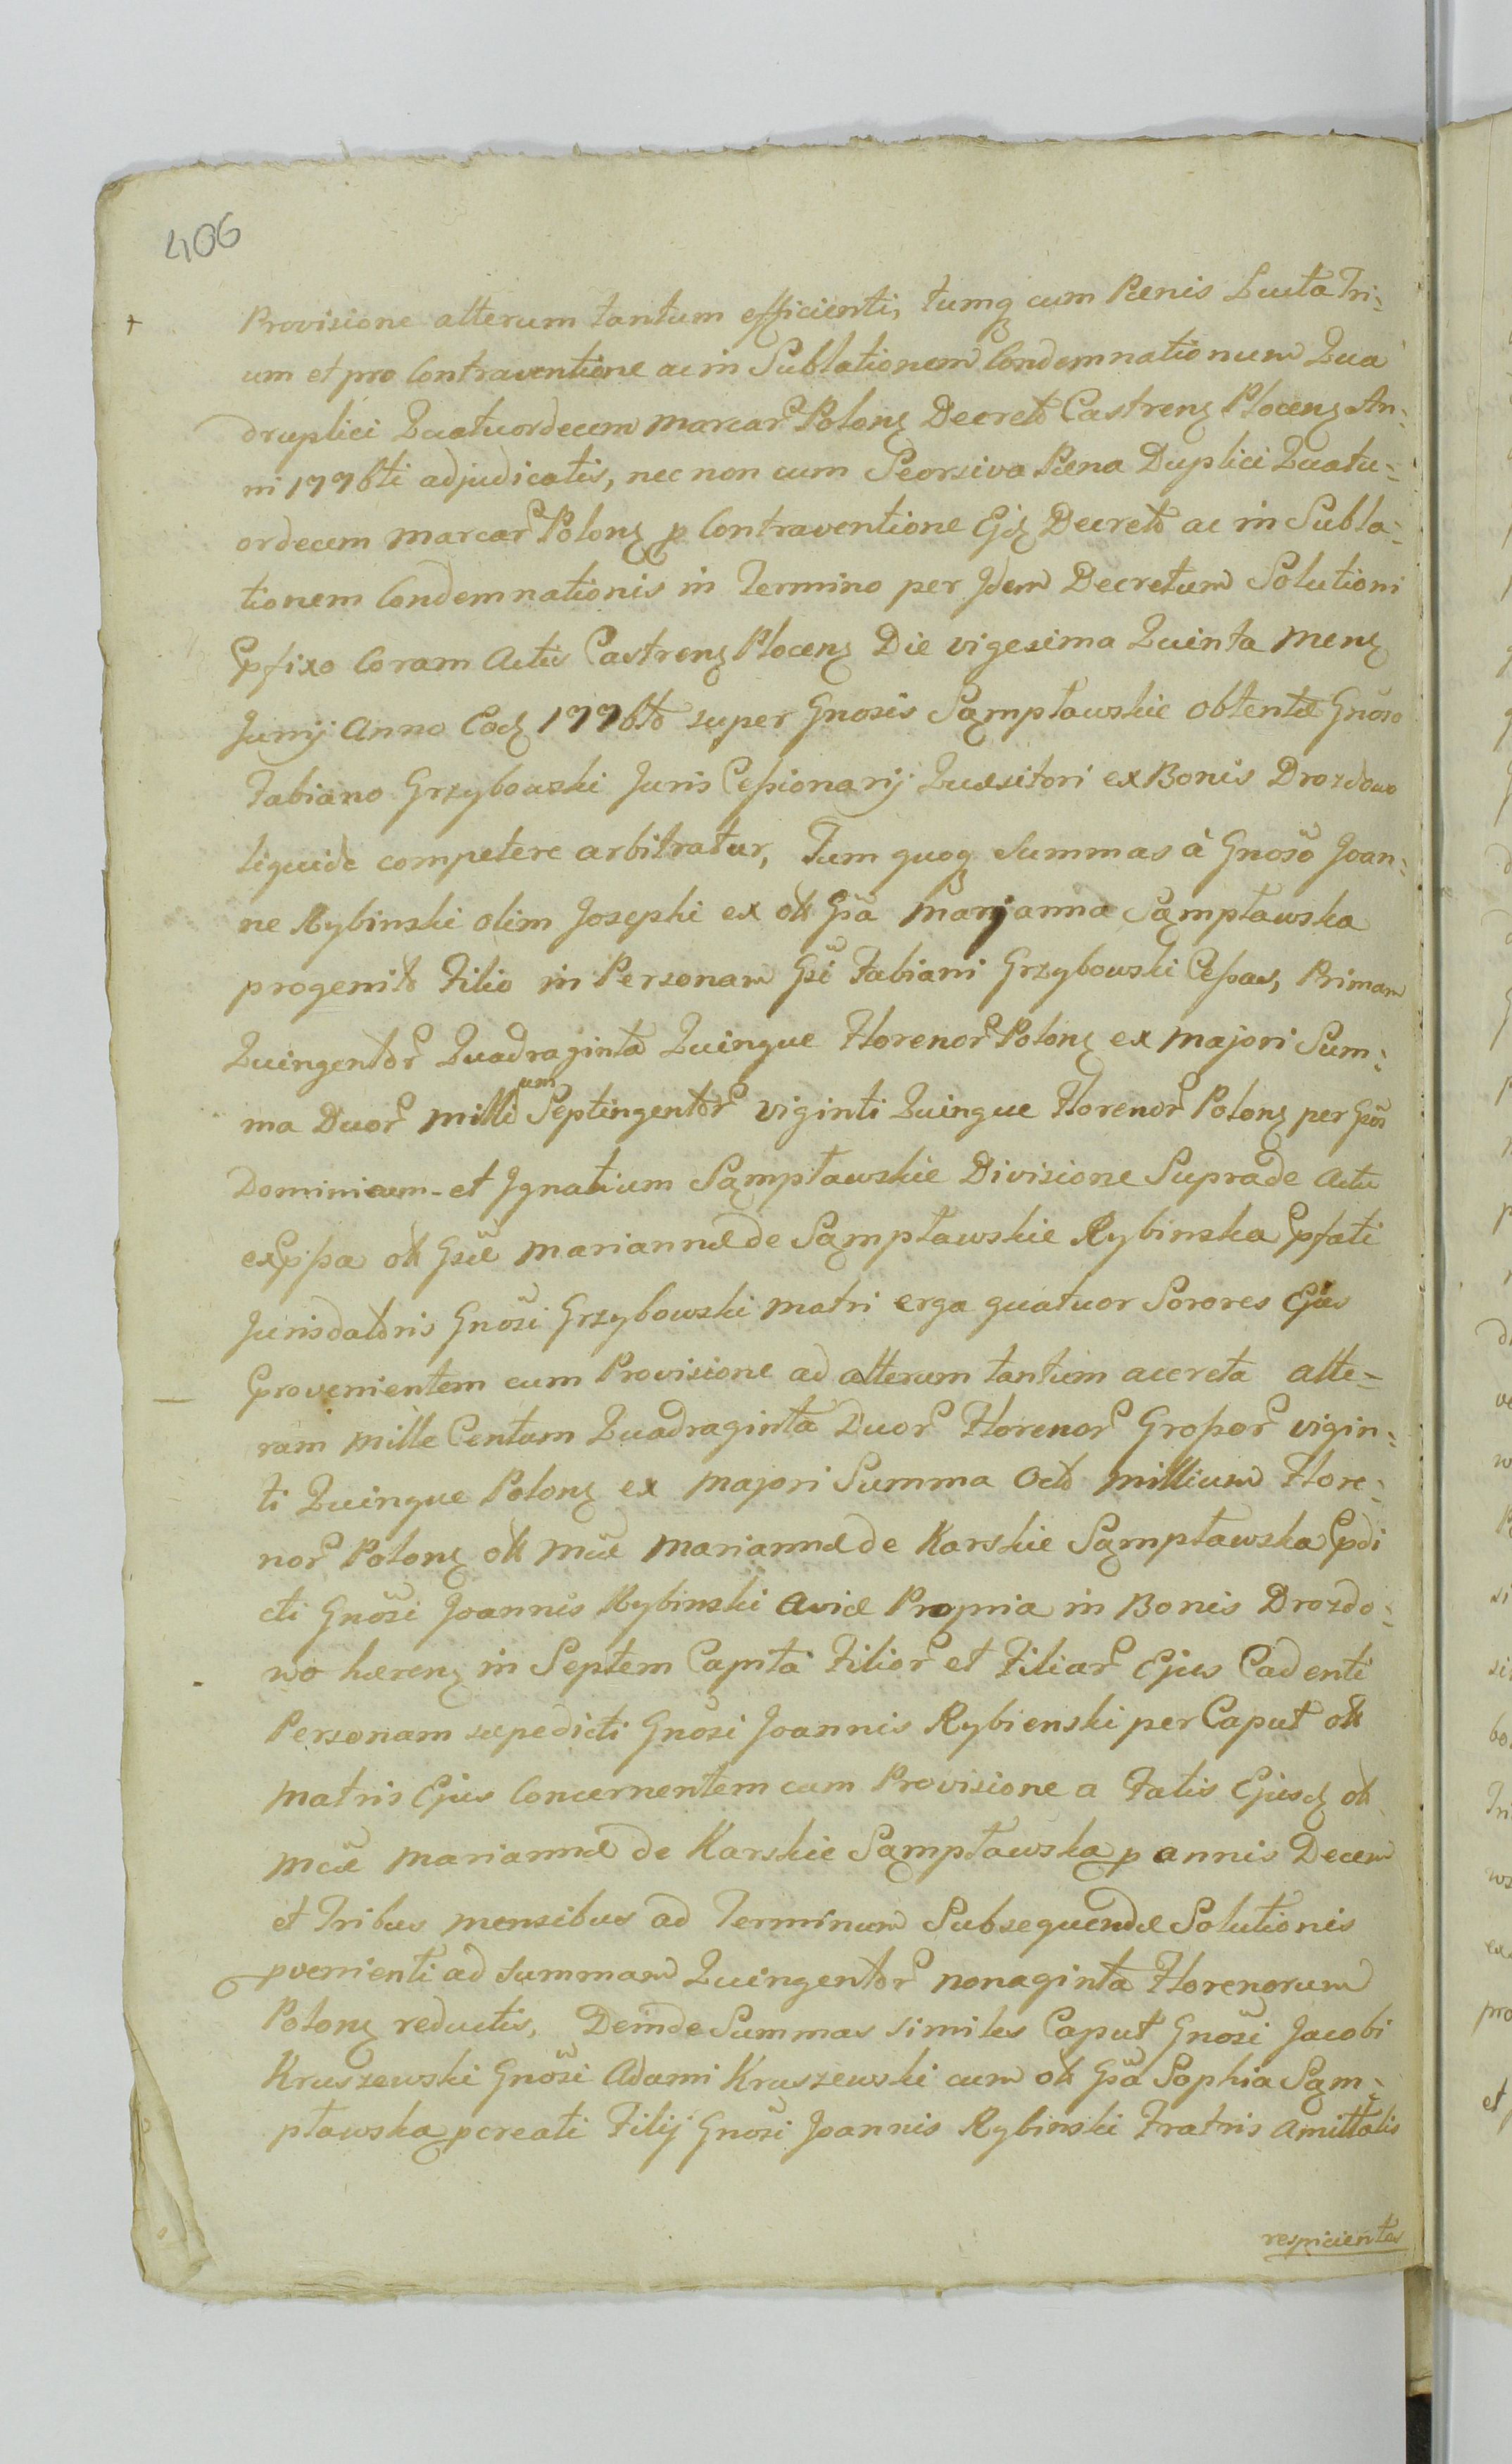 406
Provisione alterum tantum efficienti, tumq cum Pænis Lucta Tri=
um et pro Contraventione ac in Sublationem Condemnationum Qua
druplici Quatuordecem marcar Polonꝫ Decreto Castrenꝫ Plocenꝫ An=
ni 1776ti adjudicatis, nec non cum Seorsiva Pæna Duplici Quatu=
ordecem marcar Polonꝫ p Contraventione Ejꝫ Decreto ac in Subla=
tionem Condemnationis in Termino per Idem Decretum Solutioni
Pfixo Coram Actis Castrenꝫ Plocenꝫ Die vigesima Quinta Menꝫ
Junij Anno Eodꝫ 1776to super Gnosis Sąmpławskie obtentæ Gnoso
Fabiano Grzybowski Juris Cessionarij Quæsitori ex Bonis Drozdowo
liquide competere arbitratur, Tum quoq summas à Gnoso Joan=
ne Rybinski olim Josephi ex olt Gsa Marjanna Sąmpławska
progenito Filio in Personam Gsi Fabiani Grzybowski Cessas, Primam
Quingentor Quadraginta Quinque Florenor Polonꝫ ex majori Sum=
ma Duor millium Septingentor viginti Quinque Florenor Polonꝫ per Gsos
Dominicum et Ignatium Sąmpławskie Divisione Suprade Actu
expssa olt Gsæ Mariannæ de Sąmpławskie Rybinska Pfati
Jurisdatoris Gnosi Grzybowski matri erga quatuor Sorores Ejus
Provenientem cum Provisione ad alterum tantum accreta alte=
ram mille Centum Quadraginta Duor Florenor Grossor vigin=
ti Quinque Polonꝫ ex majori Summa Octo millium Flore=
nor Polonꝫ olt Mcæ Mariannæ de Karskie Sąmpławska Pdi
cti Gnosi Joannis Rybinski Aviæ Propria in Bonis Drozdo=
wo hærenꝫ in Septem Capita Filior et Filiar Ejus Cadenti
Personam sæpedicti Gnosi Joannis Rybienski per Caput olt
matris Ejus Concernentem cum Provisione a Fatis Ejusdꝫ olt
Mcæ Mariannæ de Karskie Sąmpławska p annis Decem
et Tribus mensibus ad Terminum Subsequendæ Solutionis
pvenienti ad summam Quingentor nonaginta Florenorum
Polonꝫ reductis, Deinde Summas similes Caput Gnosi Jacobi
Kruszewski Gnosi Adami Kruszewski cum olt Gsa Sophia Sąm=
pławska pcreati Filij Gnosi Joannis Rybinski Fratris Amittalis
respicientes